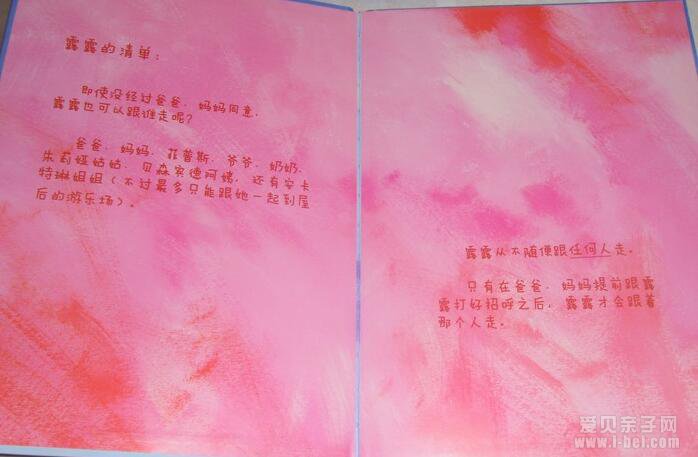 露露的清单：
即使没经过爸爸、妈妈同意，
露露也可以跟谁走呢？
爸爸、妈妈、菲普斯、爷爷、奶奶、
朱莉娅姑姑、贝森宾德阿姨，还有安卡
特琳姐姐（不过最多只能跟她一起到屋
后的游乐场）。
露露从不随便跟任何人走。
只有在爸爸、妈妈提前跟露
露打好招呼之后，露露才会跟着
那个人走。
爱贝亲子网
www.i-bei.com